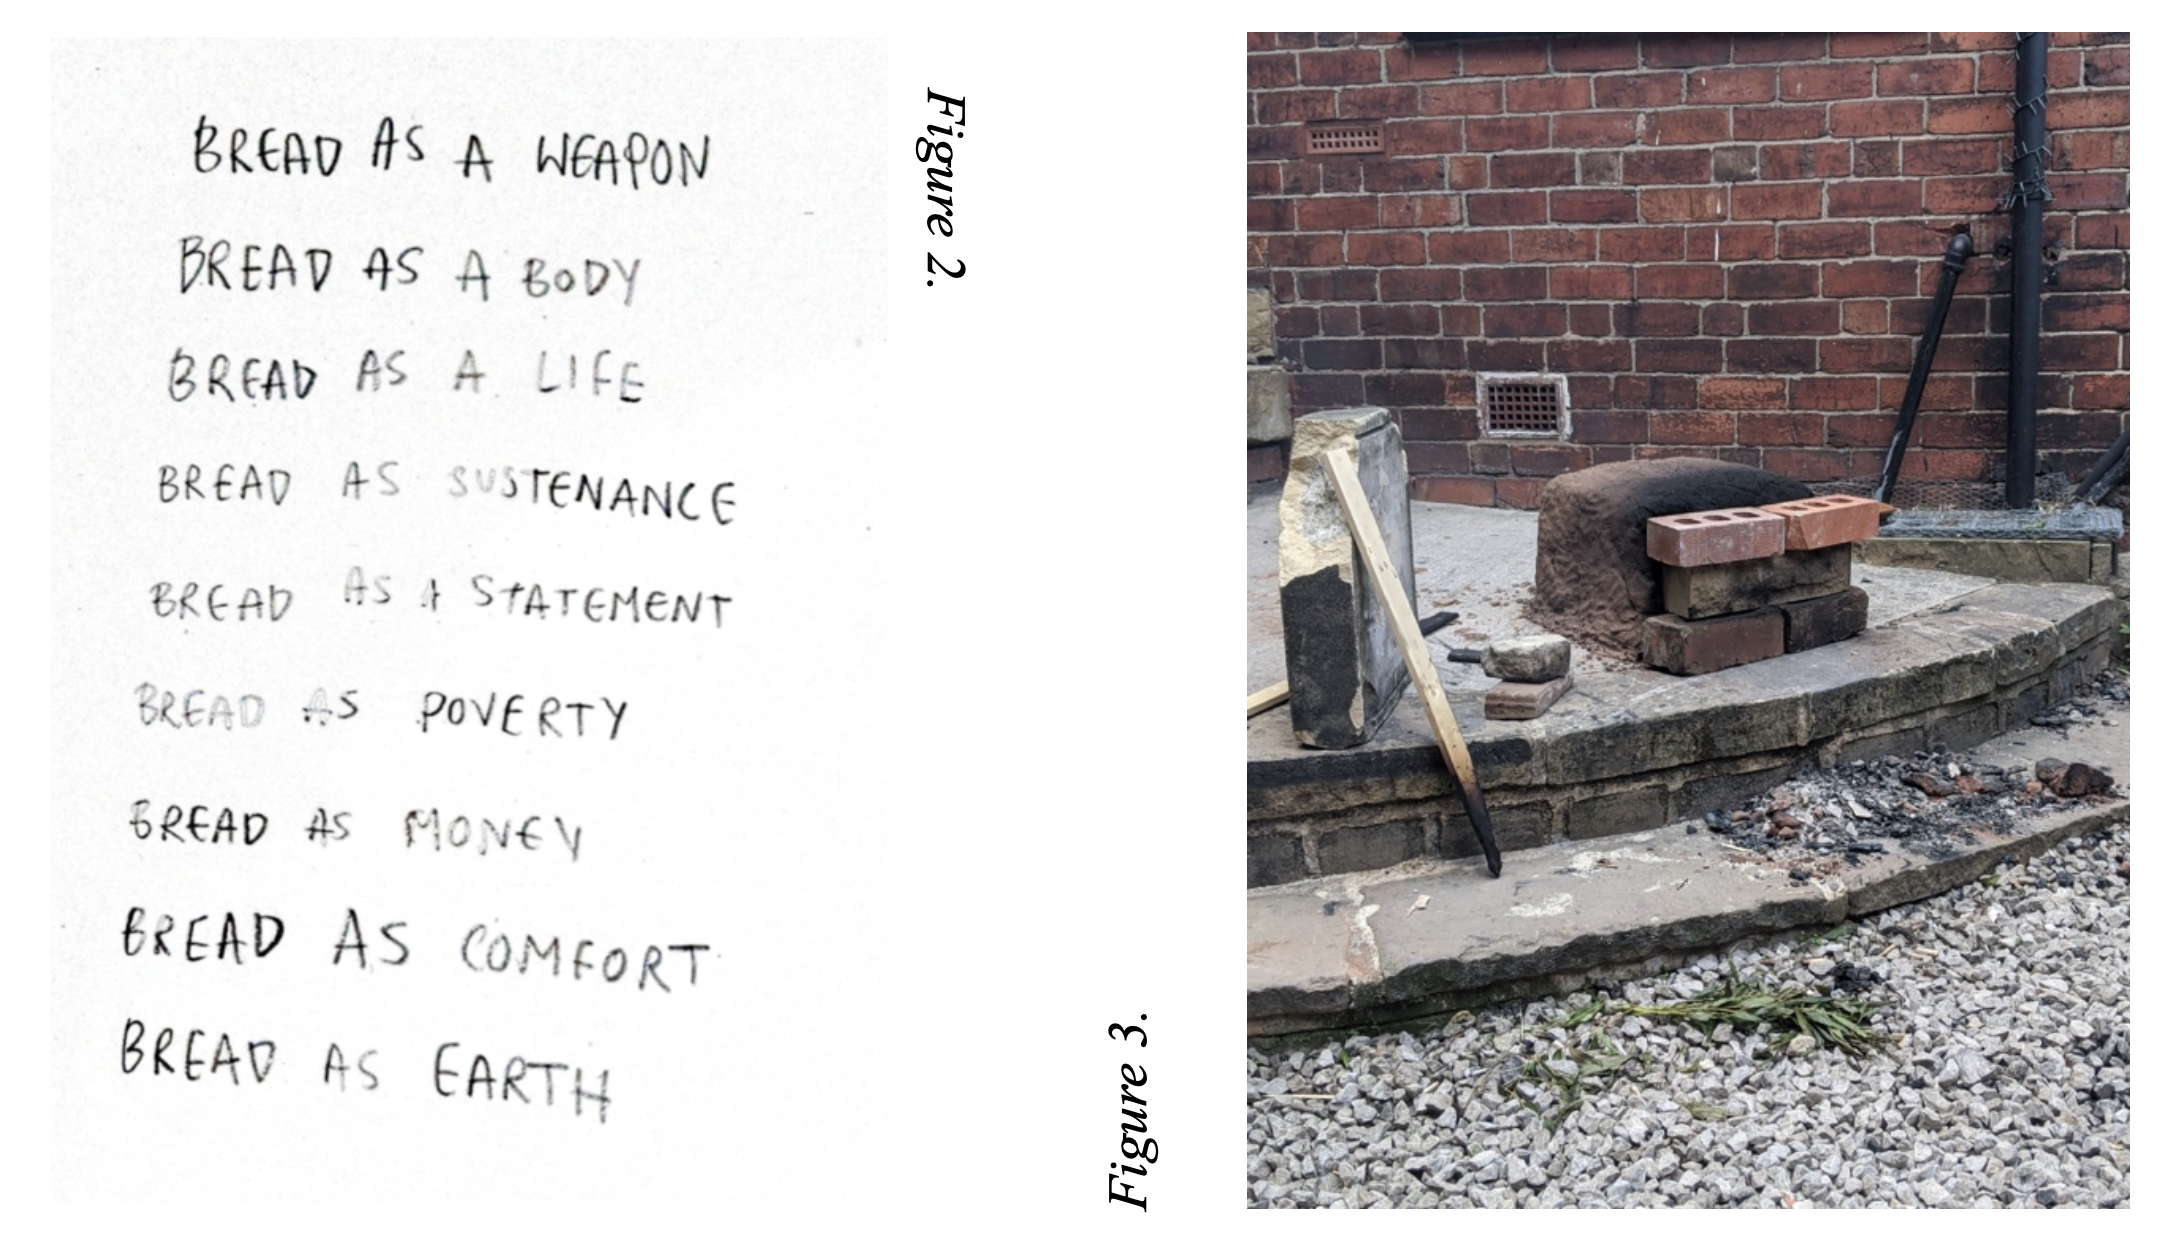 BREAD AS A WEAPON
BREAD AS A BODY
BREAD AS A LIFE
BREAD AS SUSTENANCE
BREAD AS A STATEMENT
BREAD AS POVERTY
BREAD AS MONEY
BREAD AS COMFORT
BREAD AS EARTH
Figure 2.
Figure 3.